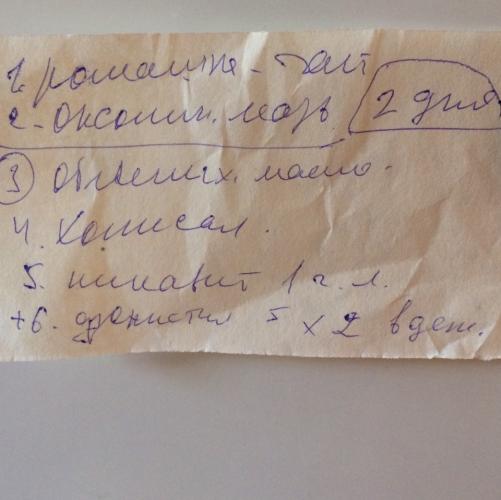 1. ромашка - чай
2. оксолин. мазь 2 дня
3 облепих. масло.
4. Холисал.
5. пиковит 1 ч. л.
+6. 5 x 2 в день.